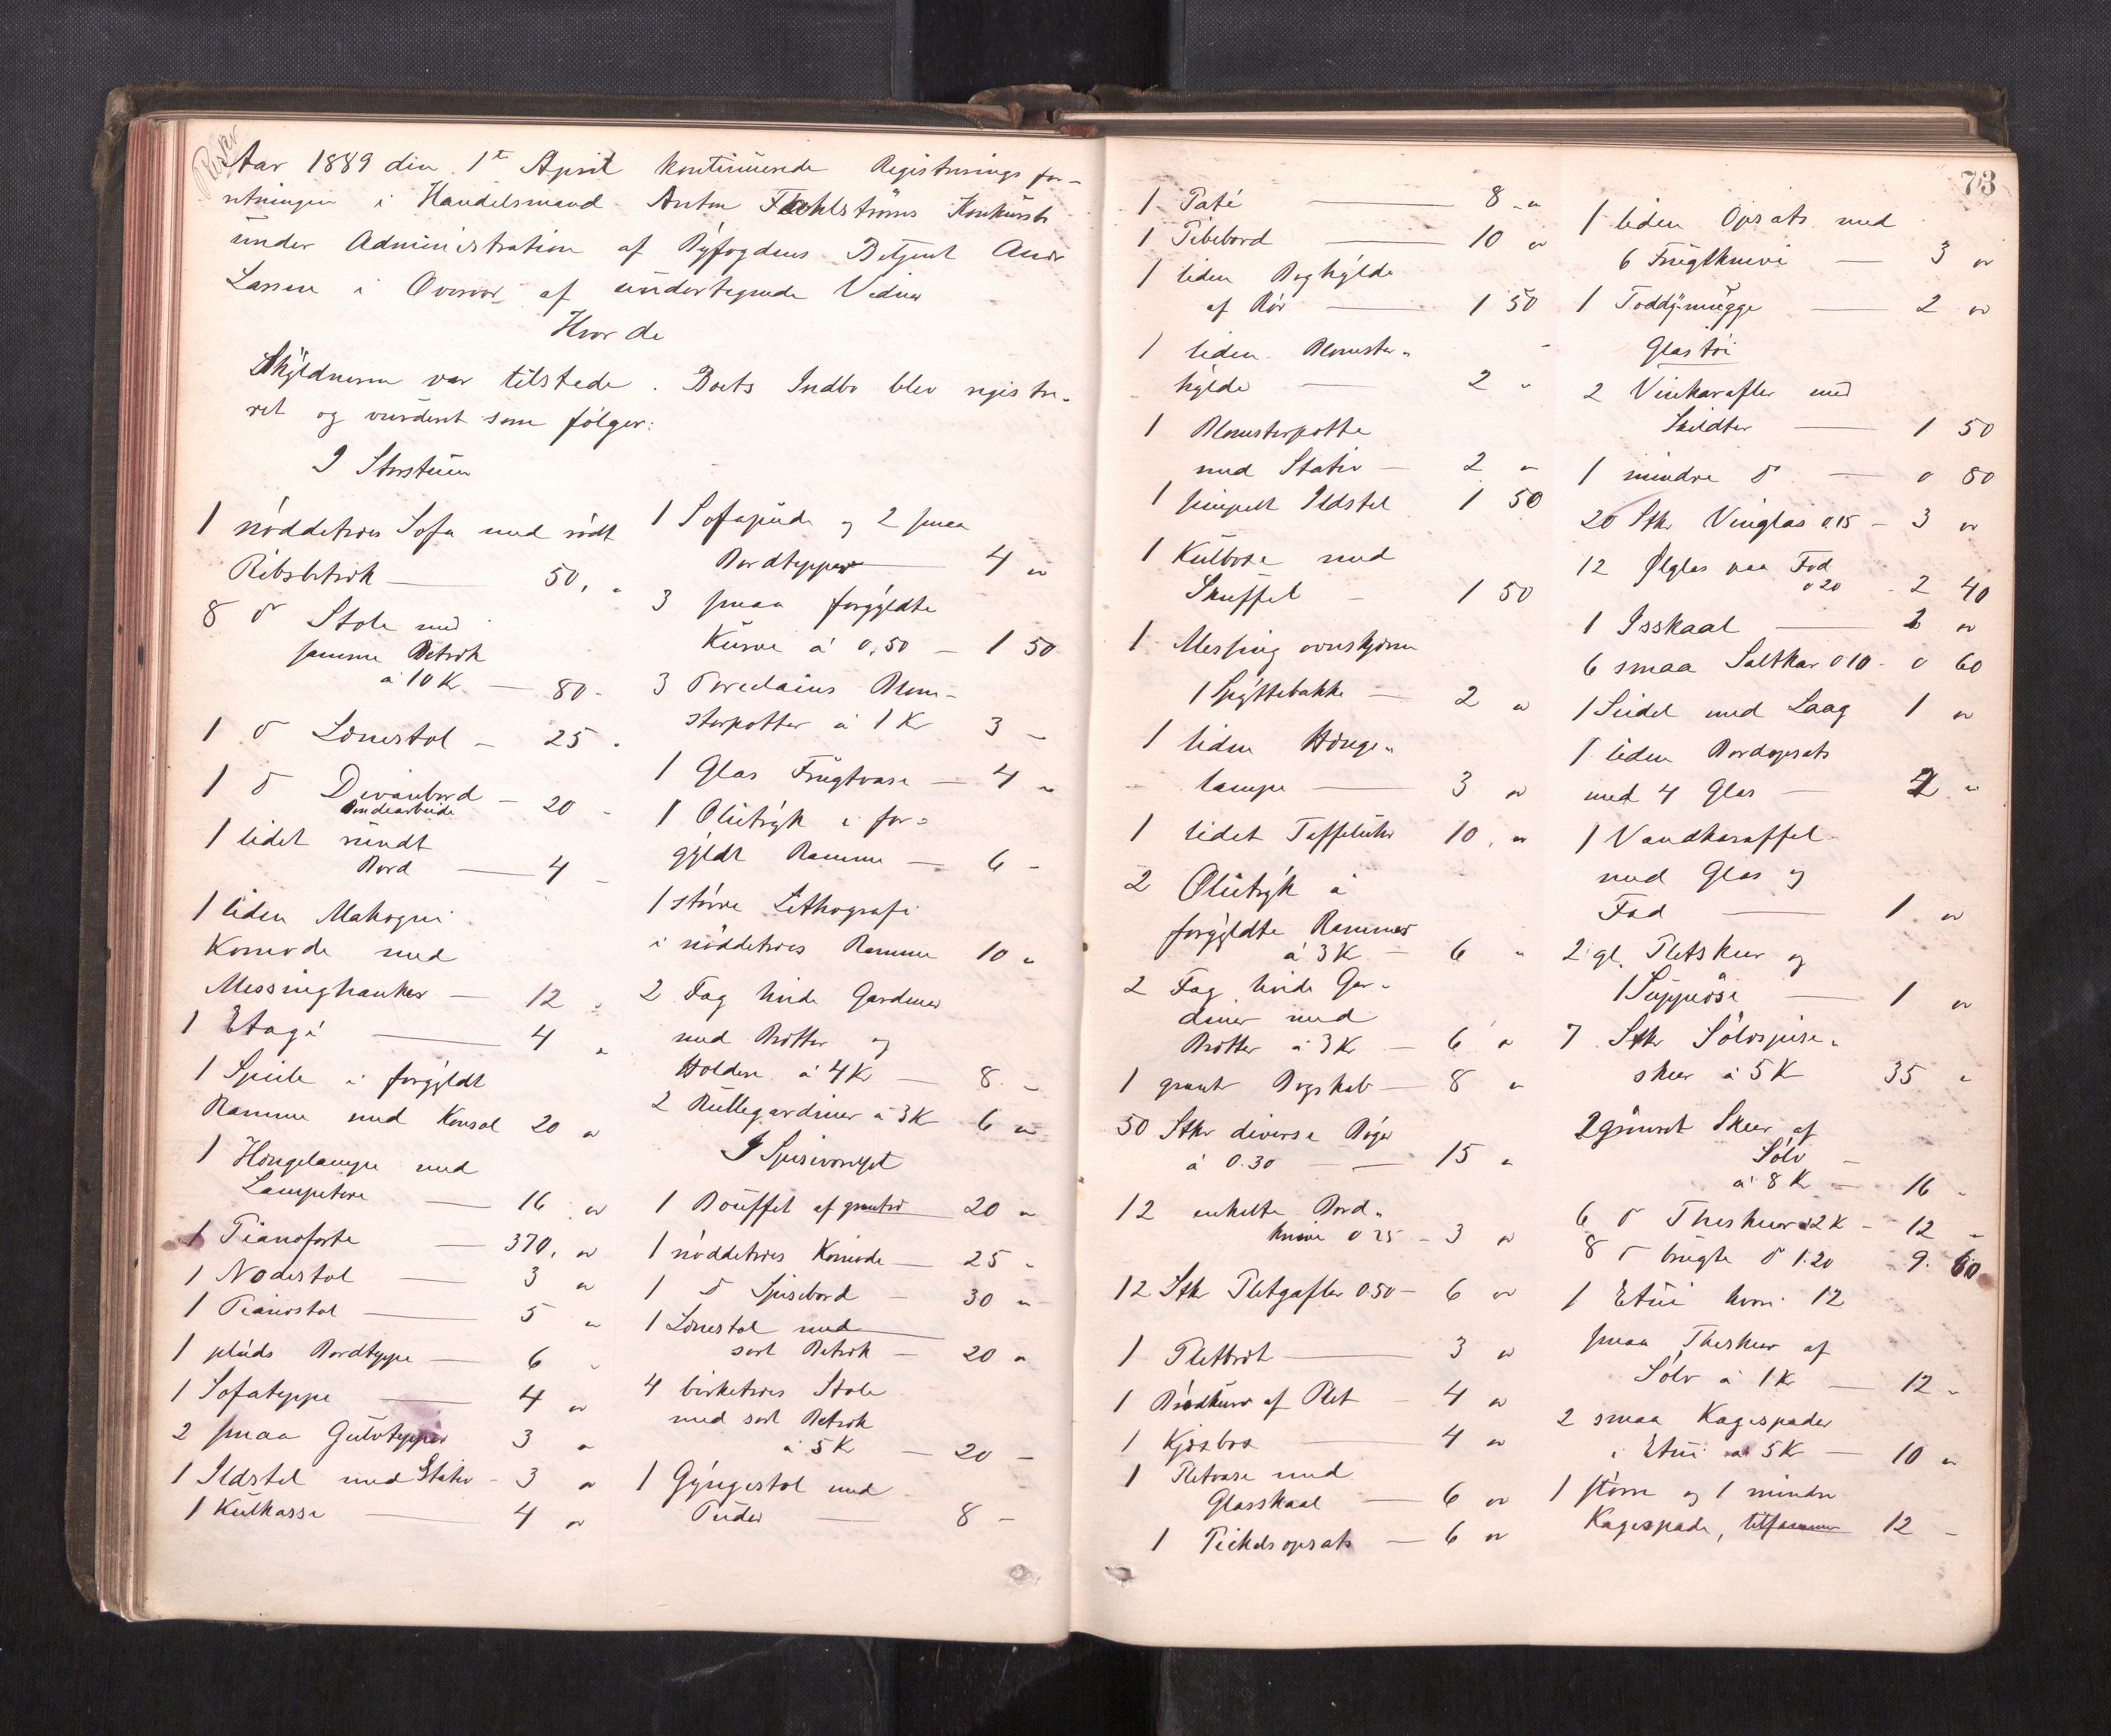 Aar 1889 den 1ste April kontinuerede Registreringsfor-
retningen i Handelsmand Anton Fahlstrøms Konkursbo
under Administration af Byfogdens Betjent Andr
Larsen i Overvær af undertegnede Vidner
Hvor da
Skyldneren var tilstede. Boets Indbo blev registre-
ret og vurderet som følger:
I Storstuen
1 nøddetræs Sofa med rødt
Ribsbetræk — 50, "
8 d° Stole med
samme Betræk
à 10 K. — 80 -
1 d° Lænestol — 25 "
1 d° Divanbord — 20 -
1 lidet rundt
Bord — 4 -
1 liden Mahogni
Komode med
Messinghanker — 12 "
1 Etagé — 4 "
1 Speile i forgyldt
Ramme med Konsol 20 "
1 Hængelampe med
Lampetere — 16 "
1 Pianoforte — 370, "
1 Nodestol — 3 "
1 Pianostol — 5 "
1 pluds Bordteppe — 6 "
1 Sofateppe — 4 "
2 smaa Gulvtepper 3 "
1 Ildstel med Stativ - 3 "
1 Kulkasse — 4 "
1 Sofapude og 2 smaa
Bordtepper — 4 "
3 smaa forgyldte
Kurve à 0,50 — 1 50
3 Porcelains Blom-
sterpotter à 1 K 3 -
1 Glas Frugtvase — 4 "
1 Olietryk i for-
gyldt Ramme — 6 -
1 større Lithografi
i nøddetræs Ramme 10 "
2 Fag hvide Gardiner
med Bretter og
Holdere à 4 Kr — 8 -
2 Rullegardiner à 3 K 6 "
I Spiseværelset
1 Bouffet af grantræ 20 "
1 nøddetræs Komode — 25 "
1 d° Spisebord — 30 "
1 Lænestol med
sort Betræk — 20 "
4 birketræs Stole
med sort Betræk
à 5 K — 20 -
1 Gyngestol med
Puder — 8 -
73
1 — 8 "
1 Pibebord — 10 "
1 liden Boghylde
af Rør — 1 50
1 liden Blomster-
hylde — 2 "
1 Blomsterpotte
med Stativ — 2 "
1 simpelt Ildstel 1 50
1 Kulboxe med
Skuffel — 1 50
1 Messing ovnskjærm
1 Spyttebakke — 2 "
1 liden Hænge-
lampe — 3 "
1 lidet Taffeluhr 10, "
2 Olietryk i
forgyldte Rammer
à 3 K — 6 "
2 Fag hvide Gar-
diner med
Bretter à 3 Kr — 6 "
1 grant Bogskab — 8 "
50 Stkr diverse Bøger
à 0.30 — 15 "
12 enkelte Bord-
knive 0 25 — 3 "
12 Stkr Pletgafler 0.50 — 6 "
1 Pletbræt — 3 "
1 Brødkurv af Plet — 4 "
1 — 4 "
1 Pletvase med
Glasskaal — 6 "
1 Pickelsopsats — 6 "
1 liden Opsats med
6 Frugtknive — 3 "
1 Toddymugge — 2 "
Glastøi
2 Vinkarafler med
Skildter — 1 50
1 mindre d° — 0 80
20 Stkr Vinglas 0.15 — 3 "
12 Ølglas paa Fod
0 20 - 2 40
1 Isskaal — "
6 smaa Saltkar 0 10 - 0 60
1 Seidel med Laag 1 "
1 liden Bordopsats
med 4 Glas — "
1 Vandkaraffel
med Glas og
Fad — 1 "
2 gl. Pletskeer og
1 Suppeøse — 1 "
7 Stkr Sølvspise-
skeer à 5 K 35 "
2 Skeer af
Sølv
à 8 K — 16 -
6 d° Theskeer à 2 K — 12 -
8 d° brugte d° 1.20 9. 60
1 Etui hvori 12
smaa Theskeer af
Sølv à 1 K — 12 -
2 smaa Kagespader
i Etui à 5 K — 10 "
1 større og 1 mindre
Kagespade, tilsammen 12 -